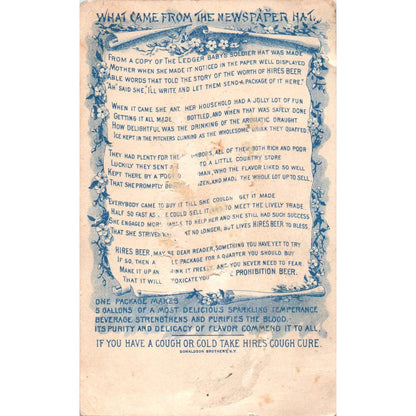 WHAT CAME FROM THE NEWSPAPER HAT.
FROM A COPY OF THE LEDGER BABY'S SOLDIER HAT WAS MADE
MOTHER WHEN SHE MADE IT NOTICED IN THE PAPER WELL DISPLAYED
ABLE WORDS THAT TOLD THE STORY OF THE WORTH OF HIRES BEER
"AH" SAID SHE, "I'LL WRITE AND LET THEM SEND A PACKAGE OF IT HERE."
WHEN IT CAME SHE AN HER HOUSEHOLD HAD A JOLLY LOT OF FUN
GETTING IT ALL MADE BOTTLED, AND WHEN THAT WAS SAFELY DONE
HOW DELIGHTFUL WAS THE DRINKING OF THE AROMATIC DRAUGHT
ICE KEPT IN THE PITCHERS CLINKING AS THE WHOLESOME DRINK THEY QUAFFED
THEY HAD PLENTY FOR THE BORS, ALL OF THEM BOTH RICH AND POOR
LUCKILY THEY SENT A TO A LITTLE COUNTRY STORE
KEPT THERE BY A POO MAN, WHO THE FLAVOR LIKED SO WELL
THAT SHE PROMPTLY BO ZEN, AND MADE THE WHOLE LOT UP TO SELL
EVERYBODY CAME TO BUY IT TILL SHE COULDN GET IT MADE
HALF SO FAST AS E COULD SELL IT TO MEET THE LIVELY TRADE
SHE ENGAGED MOR S TO HELP HER AND SHE STILL HAD SUCH SUCCESS
THAT SHE STRIVES NO LONGER, BUT LIVES HIRES BEER TO BLESS
HIRES BEER, MAY BE DEAR READER, SOMETHING YOU HAVE YET TO TRY
IF SO, THEN A LE PACKAGE FOR A QUARTER YOU SHOULD BUY
MAKE IT UP AN INK IT FREELY, AND YOU NEVER NEED TO FEAR
THAT IT WILL TOXICATE YOU PROHIBITION BEER.
ONE PACKAGE MAKES
5 GALLONS OF A MOST DELICIOUS SPARKLING TEMPERANCE
BEVERAGE. STRENGTHENS AND PURIFIES THE BLOOD.
ITS PURITY AND DELICACY OF FLAVOR COMMEND IT TO ALL.
IF YOU HAVE A COUGH OR COLD TAKE HIRES' COUGH CURE.
DONALDSON BROTHERS, N.Y.